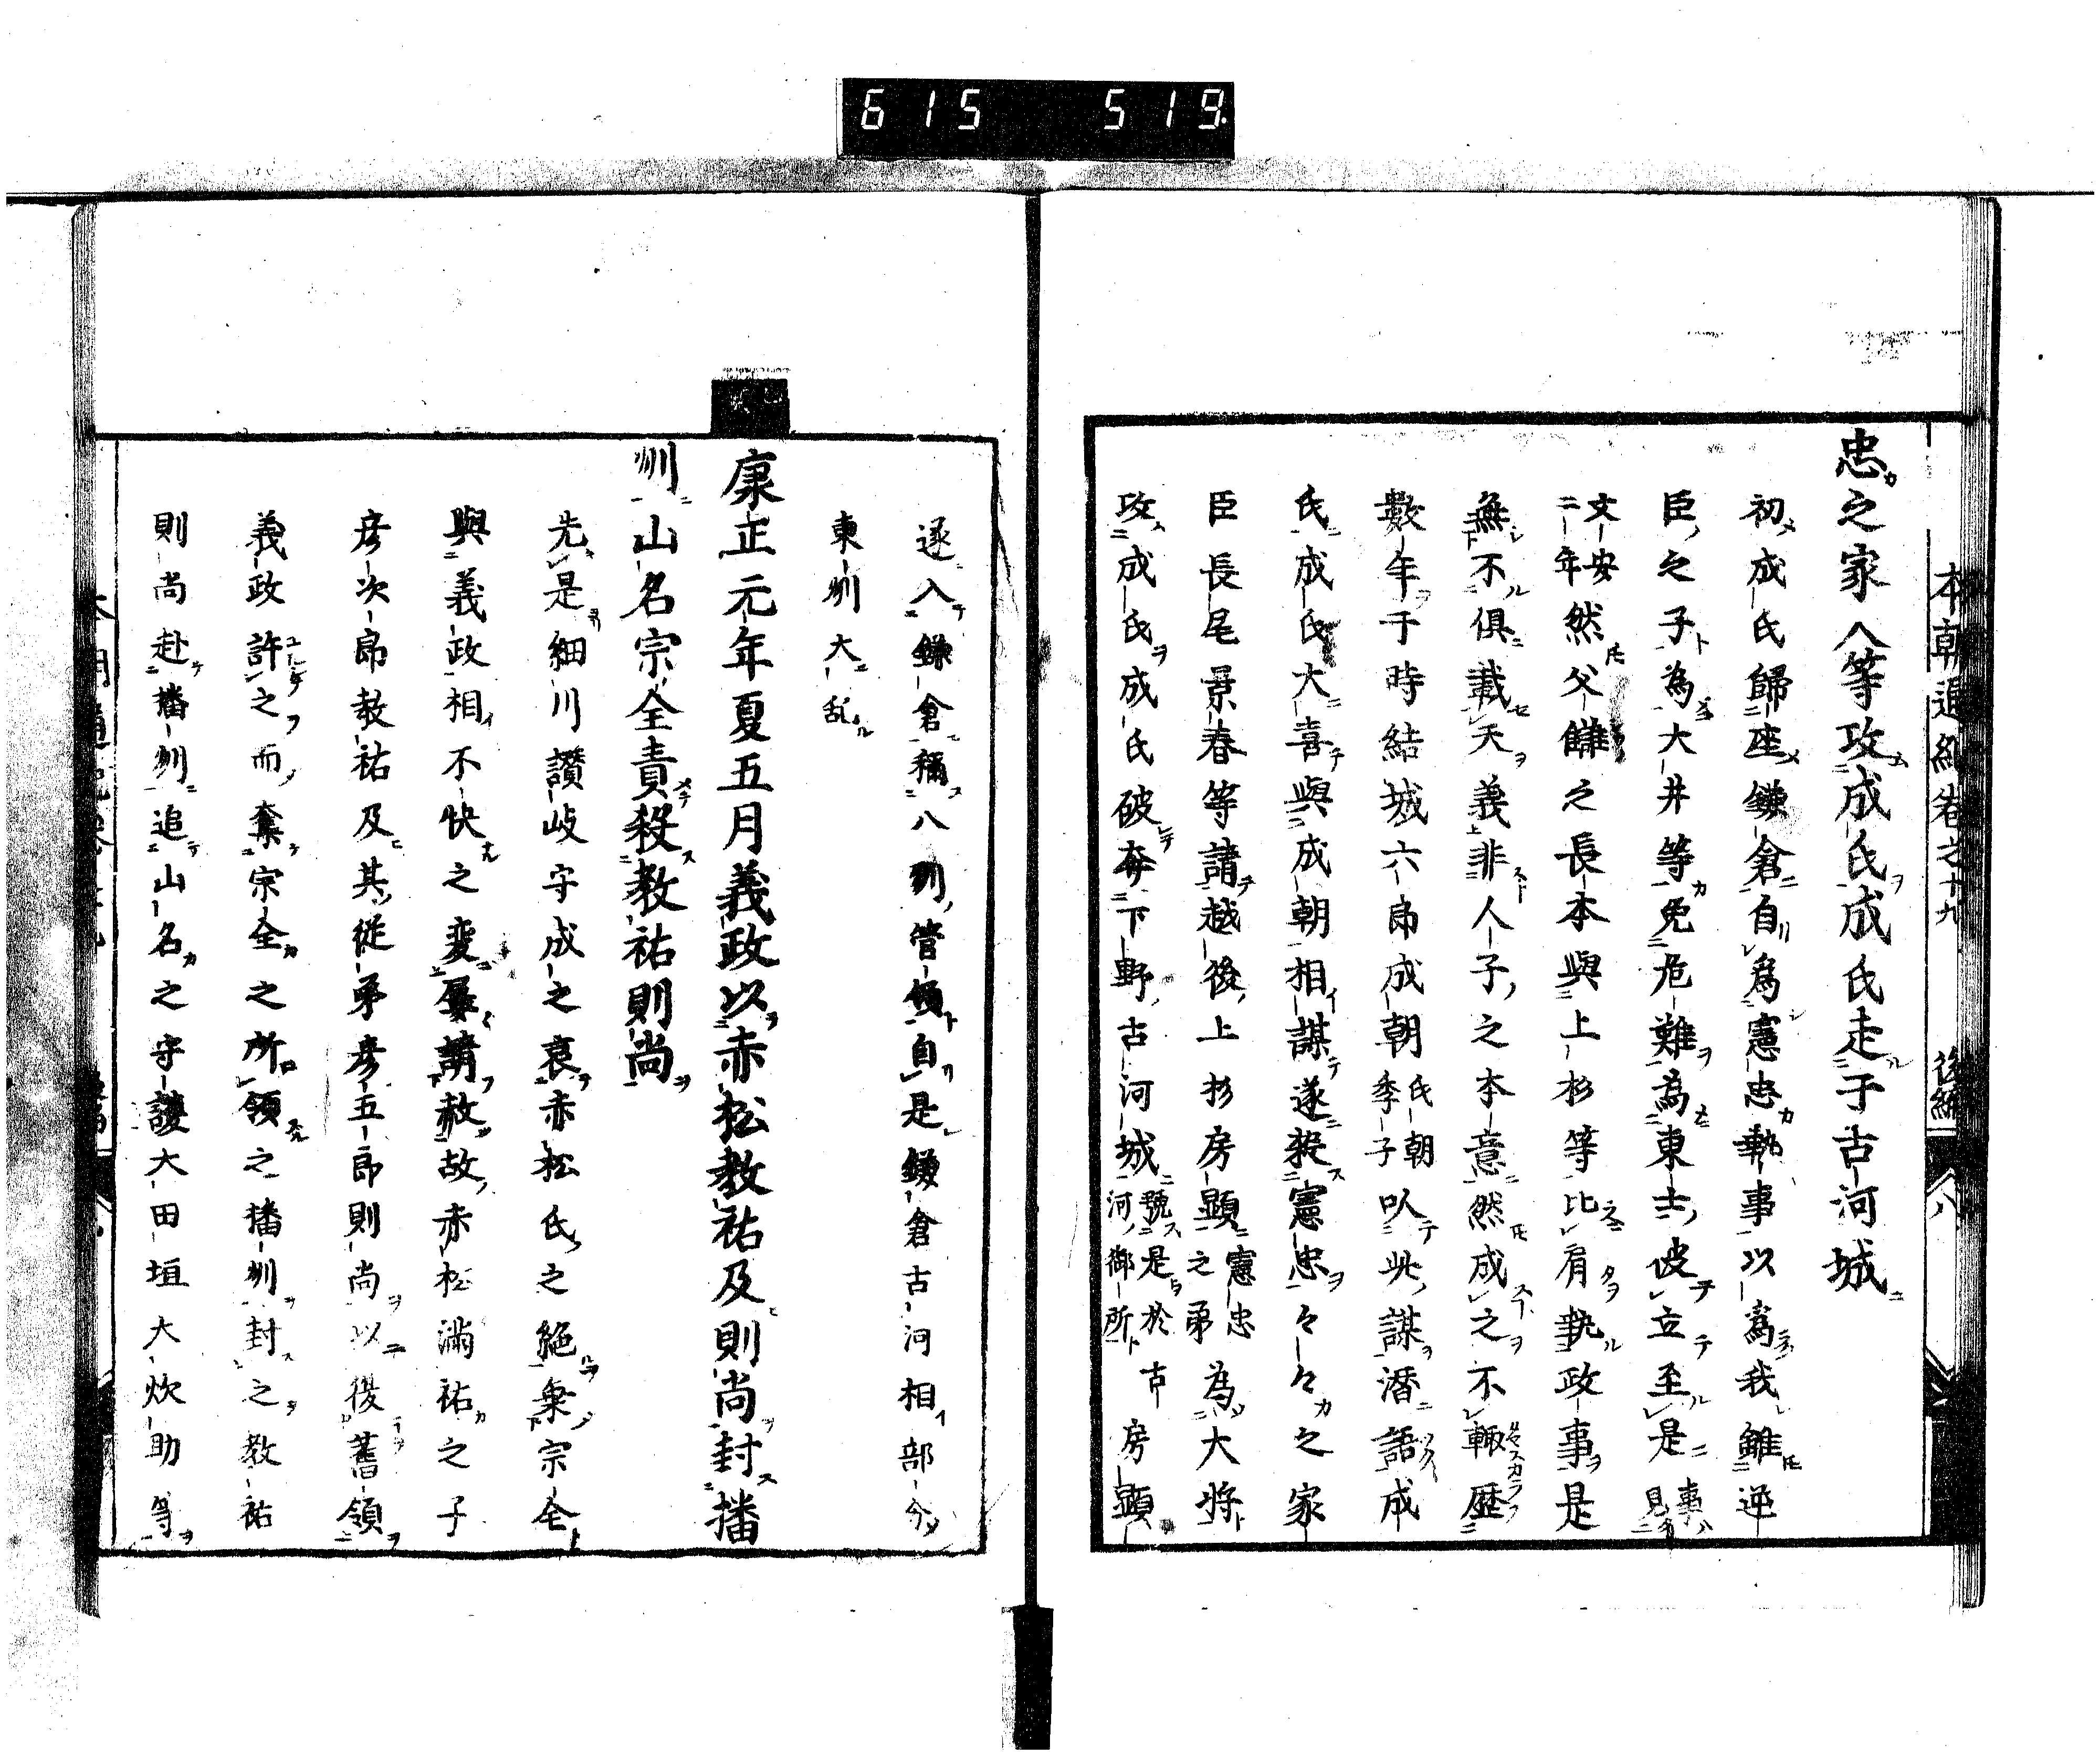 615 519
本朝通紀卷之十九 後編 八
忠之家八等攻成氏成氏走于古河城
初成氏歸座鎌倉自爲憲忠執事以爲我雖逆
臣之子爲大井等免危難爲東士彼立至是事見
文安二年然父讎之長本與上杉等比肩執政事是
無不俱戴天義非人子之本意然成之不輙歴
數年于時結城六郎成朝氏朝季子以此謀潛語成
氏成氏大喜與成朝相謀遂殺憲忠々々之家
臣長尾景春等請越後上杉房顯憲忠之弟為大將
攻成氏成氏破奔下野古河城號是於古河御所房顯
遂入鎌倉稱八州管領自是鎌倉古河相部分
東州大乱
康正元年夏五月義政以赤松教祐及則尚封播
州山名宗全責殺教祐則尚
先是細川讃岐守成之哀赤松氏之絶棄宗全
與義政相不快之変屡請赦故赤松滿祐之子
彦次郎教祐及其從弟彦五郎則尚以復舊領
義政許之而奪宗全之所領之播州封之教祐
則尚赴播州追山名之守護大田垣大炊助等